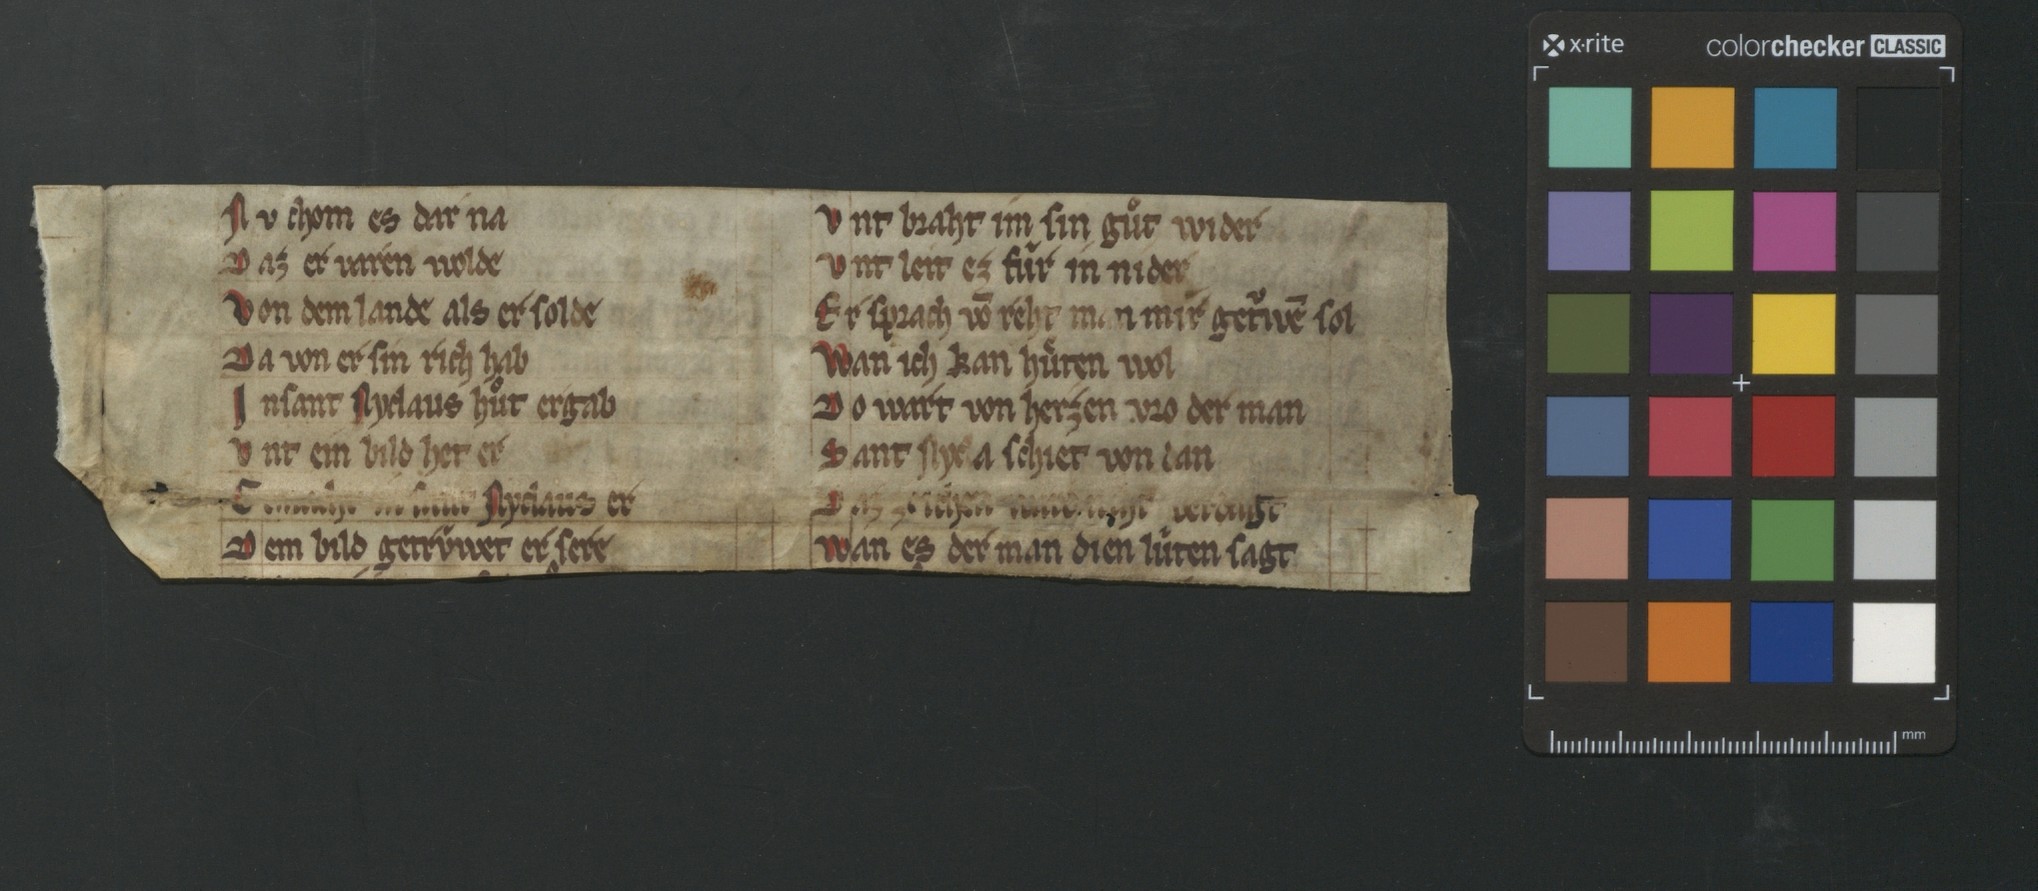 Nv chom es dar na
Daz er varen wolde
Von dem lande als er solde
Da von er sin rich hab
In sant Nyclaus hůt ergab
Vnt ein bild het er
Nyclaus er
Dem bild getrv̊wet er sere
Vnt braht im sin gůt wider
Vnt leit ez fu̍r in nider
Er sprach vō reht man mir getrwē sol
Wan ich kan hu̍ten wol
Do wart von herzen vro der man
Sant Nyc̄la schiet von dan
Daz
Wan es der man dien lu̍ten sagt
x·rite
colorchecker CLASSIC
mm